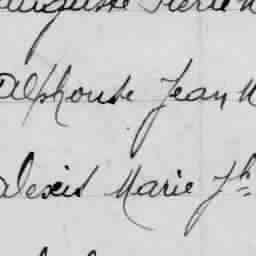 Auguste Pierre
Alphonse Jean M
Alexis Marie Jh